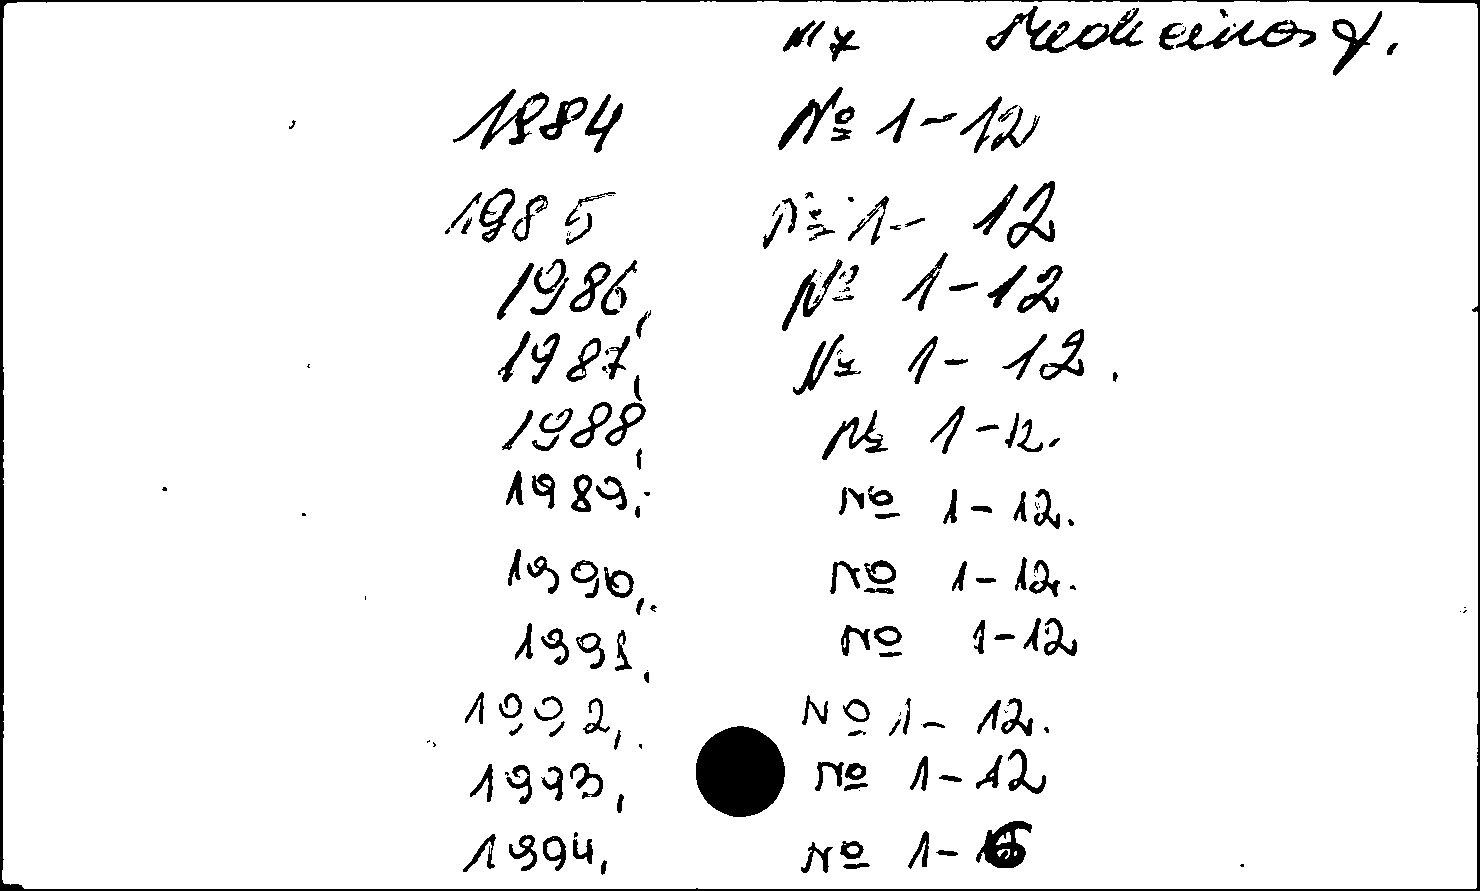 1984 № 1-12
1985 № 1- 12
1986, № 1-12
1987, № 1- 12.
1988, № 1-12.
1989, № 1-12.
1990, № 1-12.
1991. № 1-12
1992, № 1- 12.
1993, № 1-12
1994, № 1-6